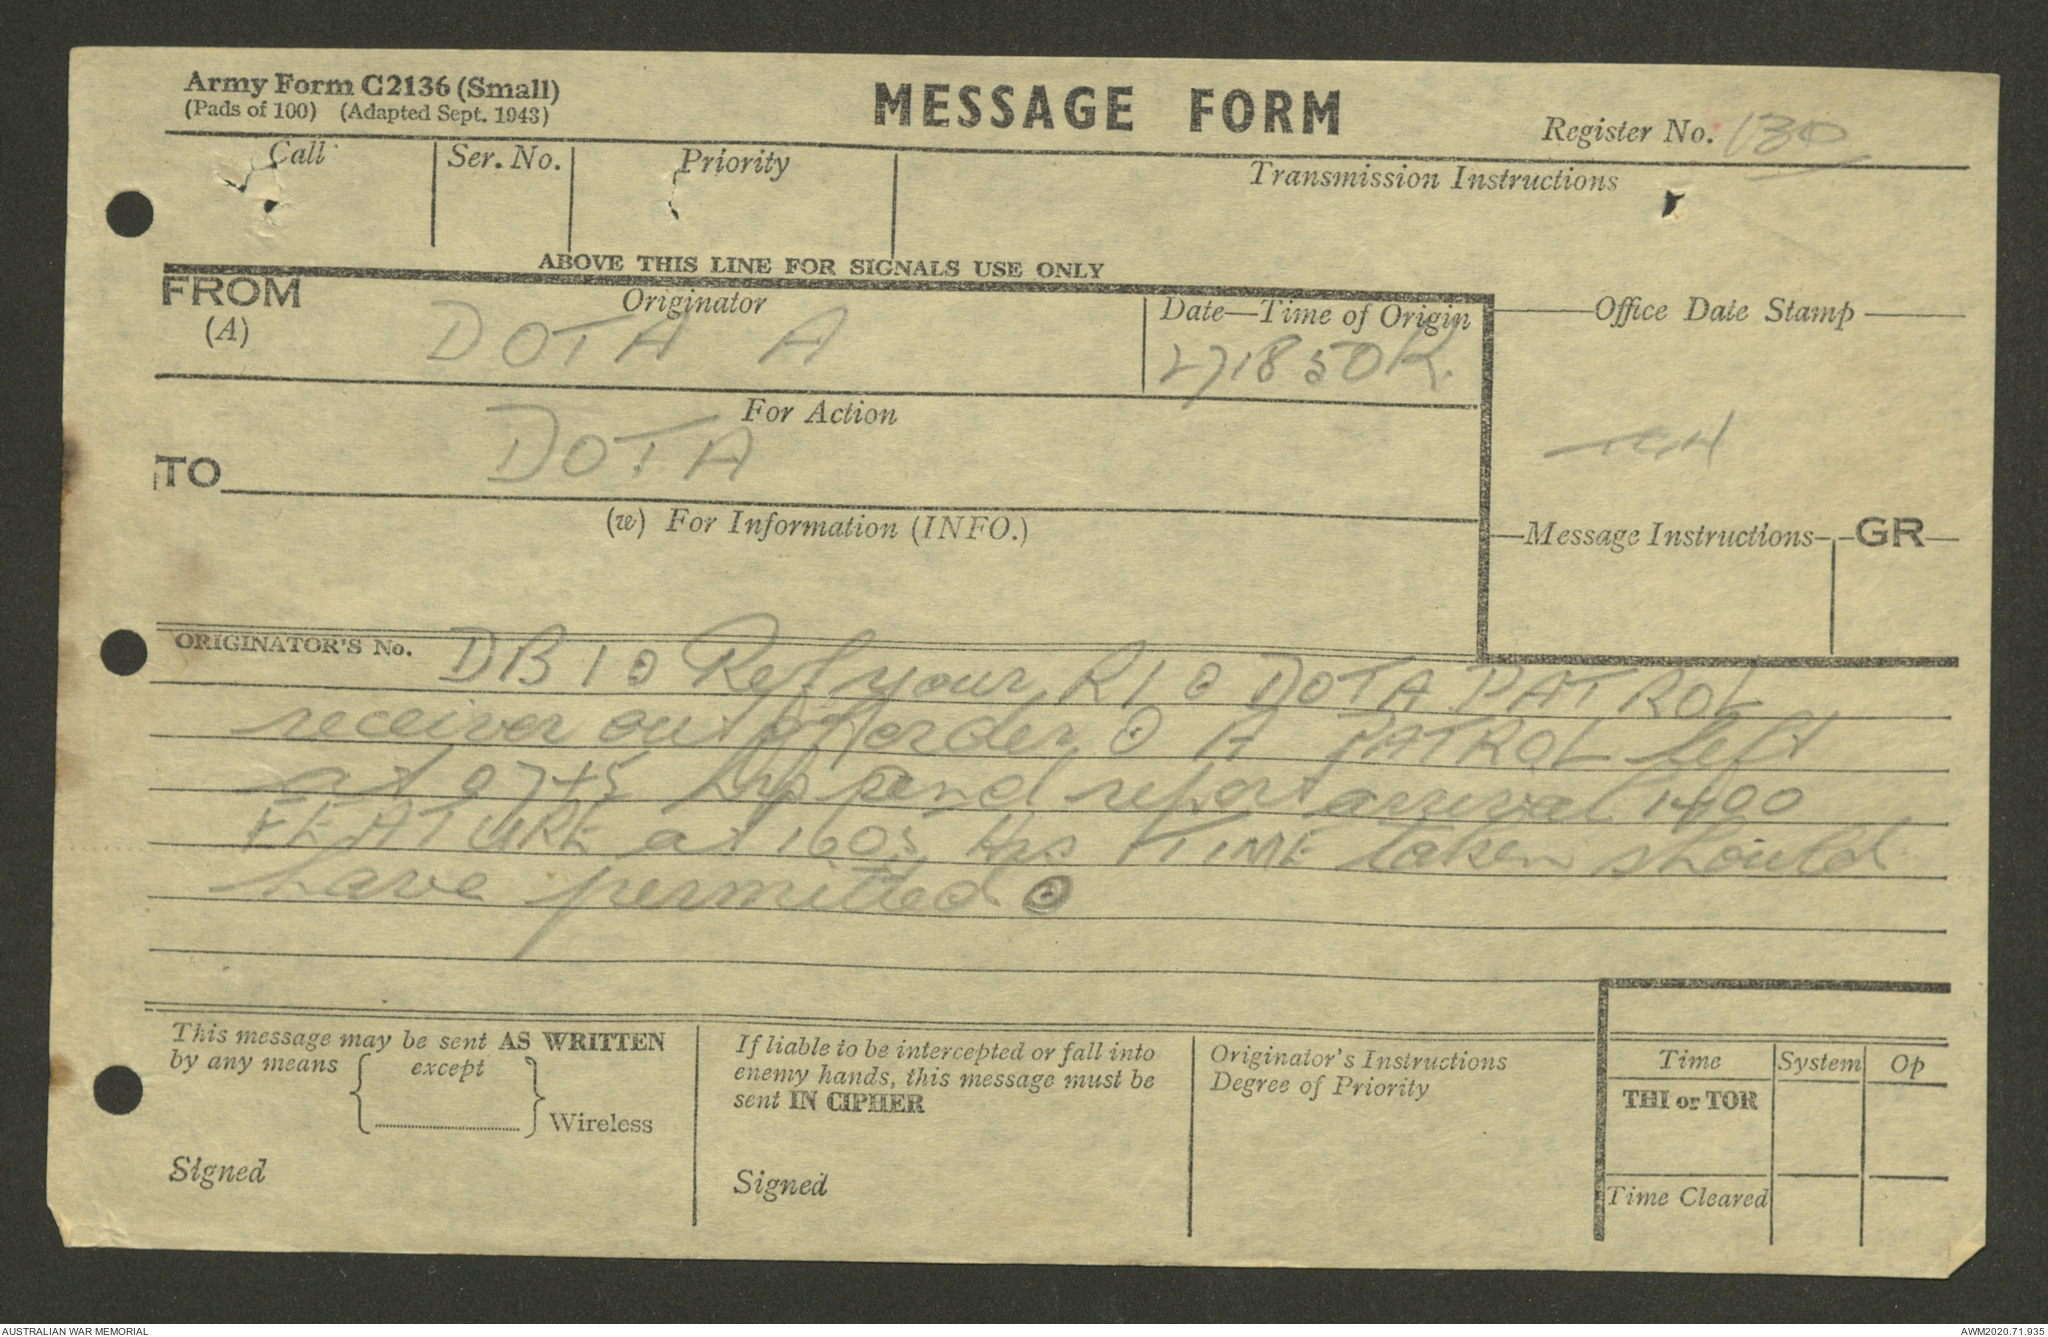 Army Form C2136 (Small)
(Pads of 100) (Adapted Sept. 1943)
MESSAGE FORM
Register No. 130
Call Ser. No. Priority Transmission Instructions
ABOVE THIS LINE FOR SIGNALS USE ONLY
FROM
(A)
Originator
DOTA A
Date—Time of Origin
271850K.
Office Date Stamp
For Action
TO
DOTA
(w) For Information (INFO.)
Message Instructions GR
ORIGINATOR'S No.
DB 1 ⊙ Ref your R1 ⊙ DOTA PATROL
receiver out of order ⊙ A PATROL left
at 0745 hrs and report arrival 1400
FEATURE at 1605 hrs TIME taken should
have permitted ⊙
This message may be sent AS WRITTEN
by any means except
Wireless
Signed
If liable to be intercepted or fall into
enemy hands, this message must be
sent IN CIPHER
Signed
Originator's Instructions
Degree of Priority
Time System Op
THI or TOR
Time Cleared
AUSTRALIAN WAR MEMORIAL
AWM2020.71.935